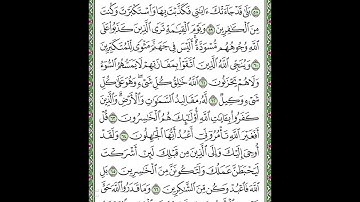 بَلَىٰ قَدْ جَآءَتْكَ ءَايَٰتِى فَكَذَّبْتَ بِهَا وَٱسْتَكْبَرْتَ وَكُنتَ
مِنَ ٱلْكَٰفِرِينَ ٥٩ وَيَوْمَ ٱلْقِيَٰمَةِ تَرَى ٱلَّذِينَ كَذَبُوا۟ عَلَى
ٱللَّهِ وُجُوهُهُم مُّسْوَدَّةٌ أَلَيْسَ فِى جَهَنَّمَ مَثْوًى لِّلْمُتَكَبِّرِينَ
٦٠ وَيُنَجِّى ٱللَّهُ ٱلَّذِينَ ٱتَّقَوْا۟ بِمَفَازَتِهِمْ لَا يَمَسُّهُمُ ٱلسُّوٓءُ
وَلَا هُمْ يَحْزَنُونَ ٦١ ٱللَّهُ خَٰلِقُ كُلِّ شَىْءٍ وَهُوَ عَلَىٰ كُلِّ
شَىْءٍ وَكِيلٌ ٦٢ لَّهُۥ مَقَالِيدُ ٱلسَّمَٰوَٰتِ وَٱلْأَرْضِ وَٱلَّذِينَ
كَفَرُوا۟ بِـَٔايَٰتِ ٱللَّهِ أُو۟لَٰٓئِكَ هُمُ ٱلْخَٰسِرُونَ ٦٣ قُلْ
أَفَغَيْرَ ٱللَّهِ تَأْمُرُوٓنِّىٓ أَعْبُدُ أَيُّهَا ٱلْجَٰهِلُونَ ٦٤ وَلَقَدْ
أُوحِىَ إِلَيْكَ وَإِلَى ٱلَّذِينَ مِن قَبْلِكَ لَئِنْ أَشْرَكْتَ
لَيَحْبَطَنَّ عَمَلُكَ وَلَتَكُونَنَّ مِنَ ٱلْخَٰسِرِينَ ٦٥ بَلِ
ٱللَّهَ فَٱعْبُدْ وَكُن مِّنَ ٱلشَّٰكِرِينَ ٦٦ وَمَا قَدَرُوا۟ ٱللَّهَ حَقَّ